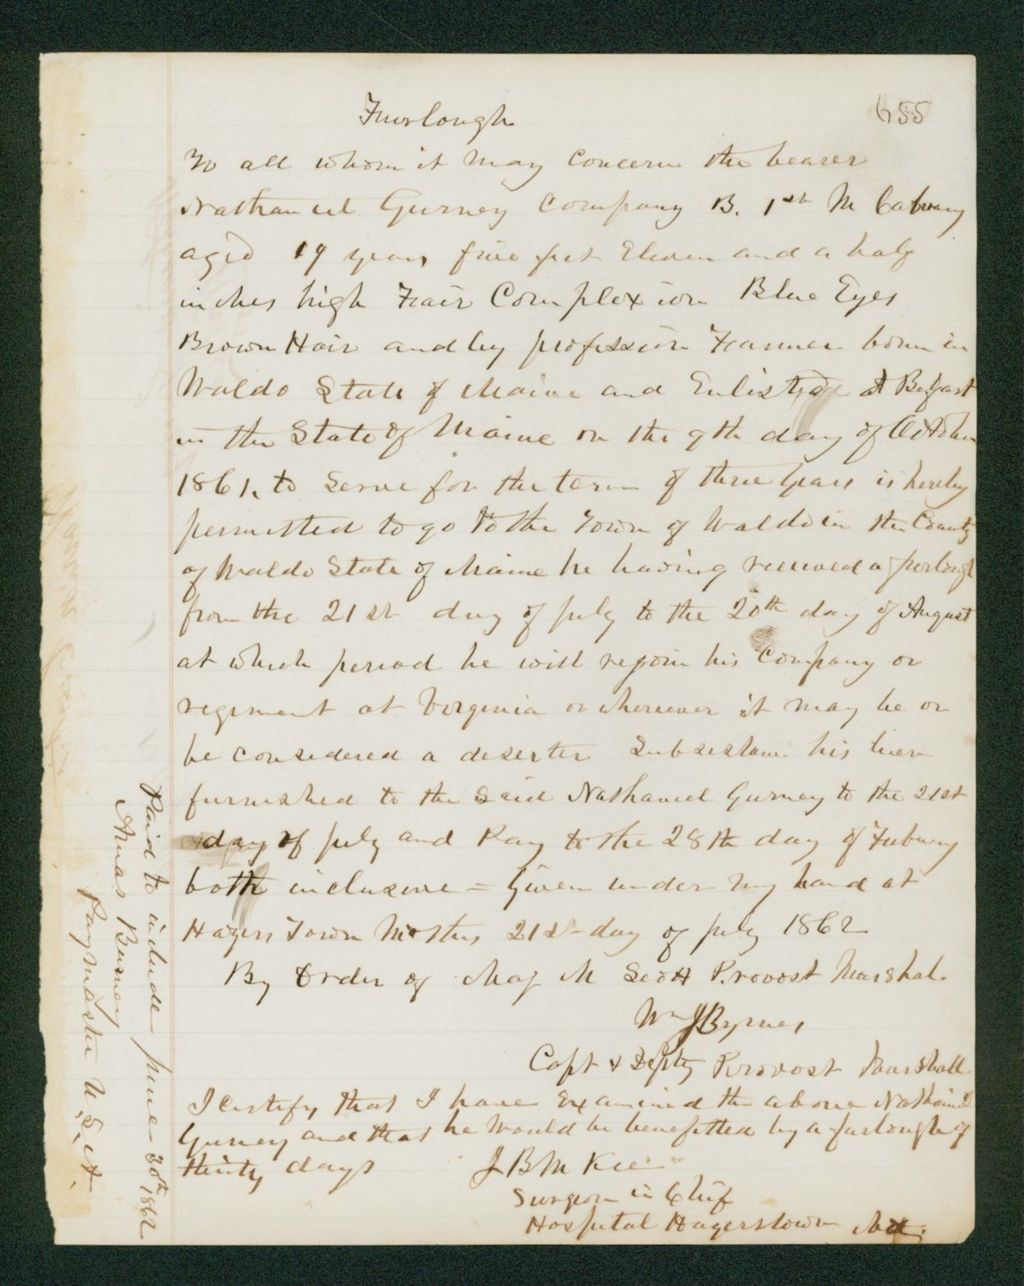 655
Furlough
To all whom it may Concern the bearer
Nathaniel Gurney Company B. 1st M Calvary
aged 19 years five feet Eleven and a half
inches high Fair Complexion Blue Eyes
Brown Hair and by profession Farmer born in
Waldo State of Maine and Enlisted at Belfast
in the State of Maine on the 9th day of October
1861, to Serve for the term of three years is hereby
permitted to go to the Town of Waldo in the County
of Waldo State of Maine he having received a furlough
from the 21st day of July to the 20th day of August
at which period he will rejoin his Company or
regiment at Virginia or wherever it may be or
be considered a deserter Subsistance his been
furnished to the Said Nathaniel Gurney to the 21st
day of July and Pay to the 28th day of Febuary
both inclusive = Given under my hand at
Hagers Town Md this 21st day of July 1862
By Order of Maj M Scott Provost Marshal.
Wm J Byrnes
Capt & Depty Provost Marshall
I certify that I have Examined the above Nathaniel
Gurney and that he would be benefitted by a furlough of
thirty days J B McKee
Surgeon in Chief
Hospital Hagerstown Md
Paid to include June 30th 1862
Paymaster U.S.A.